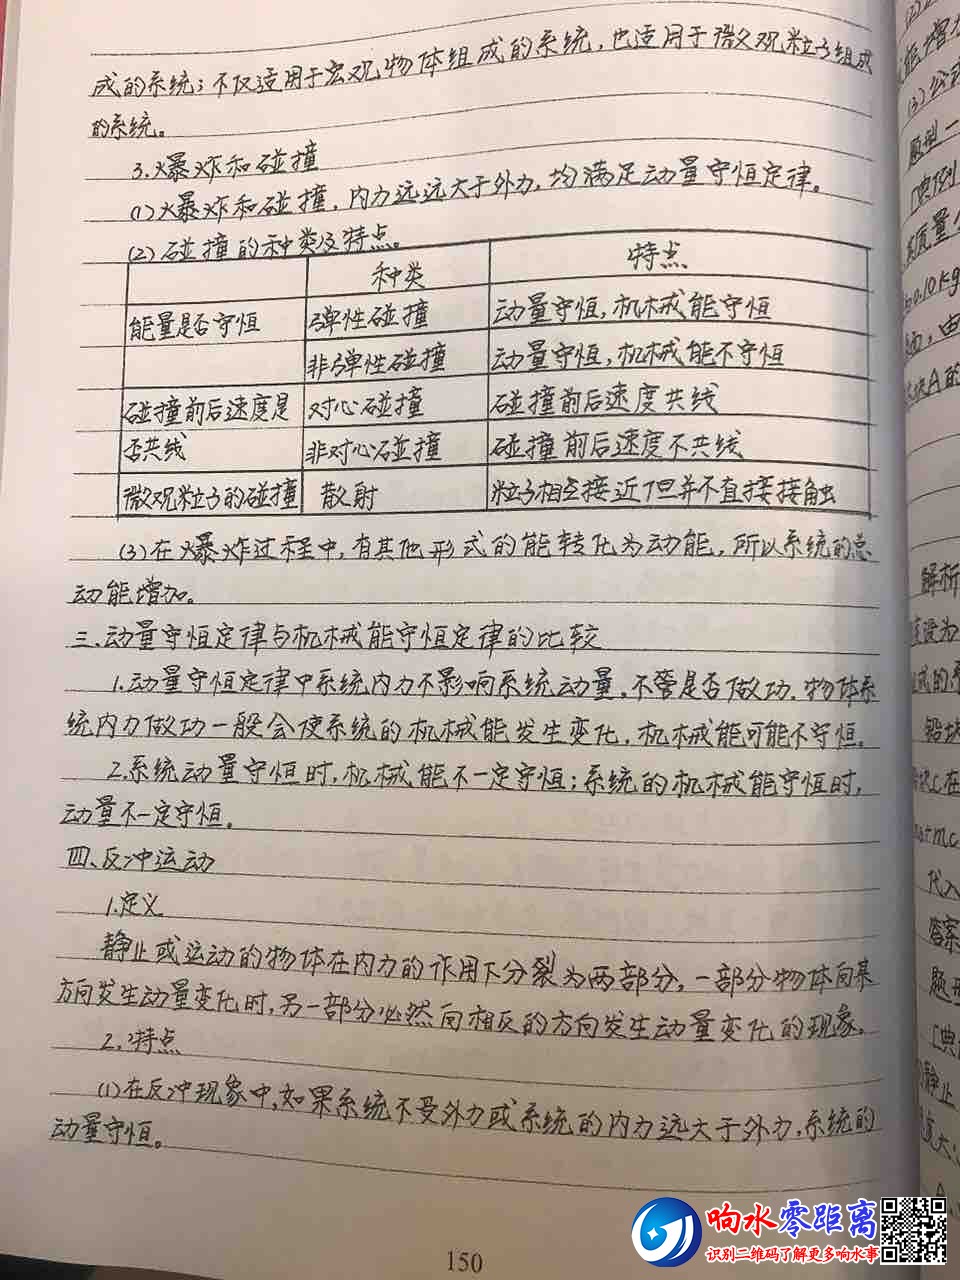 成的系统；不仅适用于宏观物体组成的系统，也适用于微观粒子组成
的系统。
3.爆炸和碰撞
(1)爆炸和碰撞，内力远远大于外力，均满足动量守恒定律。
(2)碰撞的种类及特点。
种类 特点
能量是否守恒 弹性碰撞 动量守恒，机械能守恒
非弹性碰撞 动量守恒，机械能不守恒
碰撞前后速度是 对心碰撞 碰撞前后速度共线
否共线 非对心碰撞 碰撞前后速度不共线
微观粒子的碰撞 散射 粒子相互接近但并不直接接触
(3)在爆炸过程中，有其他形式的能转化为动能，所以系统的总
动能增加。
三.动量守恒定律与机械能守恒定律的比较
1.动量守恒定律中系统内力不影响系统动量，不管是否做功.物体系
统内力做功一般会使系统的机械能发生变化，机械能可能不守恒。
2.系统动量守恒时，机械能不一定守恒；系统的机械能守恒时，
动量不一定守恒。
四、反冲运动
1.定义
静止或运动的物体在内力的作用下分裂为两部分，一部分物体向某
方向发生动量变化时，另一部分必然向相反的方向发生动量变化的现象。
2.特点
(1)在反冲现象中，如果系统不受外力或系统的内力远大于外力，系统的
动量守恒。
150
能增
(3)公式
题型一
[典例
质量
0.10kg
由
块A的
解析
设为
成的系
铅块
块C在
代入
答案
题型
[典
静止
响水零距离
识别二维码了解更多响水事